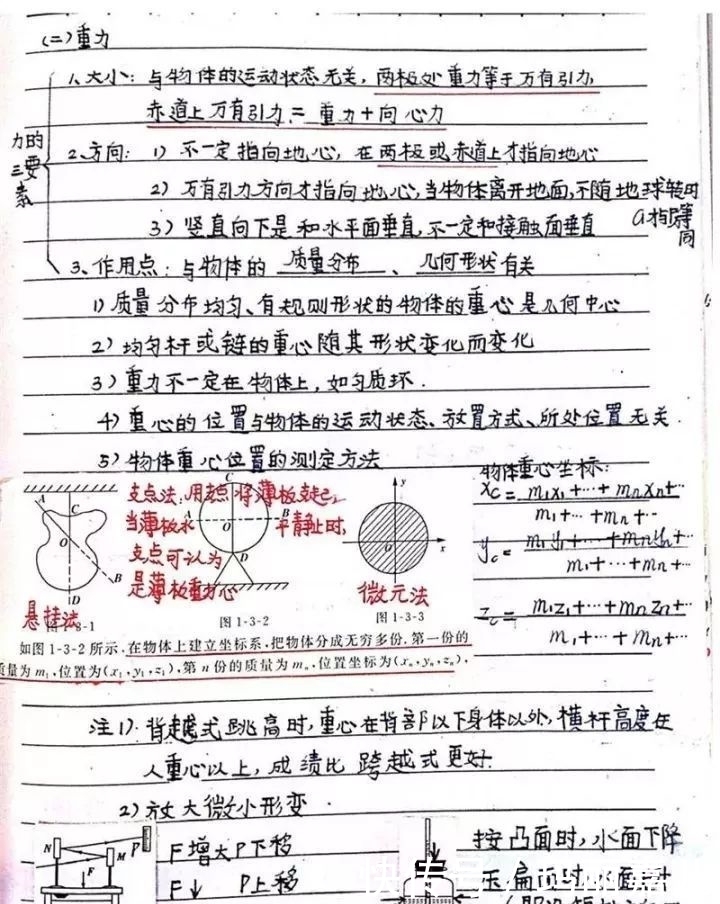 (二)重力
1、大小：与物体的运动状态无关，两极处重力等于万有引力，
赤道上万有引力 = 重力+向心力
力的三要素
2、方向：1) 不一定指向地心，在两极或赤道上才指向地心
2) 万有引力方向才指向地心，当物体离开地面，不随地球转时
同
3) 竖直向下是和水平面垂直，不一定和接触面垂直
3、作用点：与物体的 质量分布 、 几何形状 有关
1) 质量分布均匀、有规则形状的物体的重心是几何中心
2) 均匀杆或链的重心随其形状变化而变化
3) 重力不一定在物体上，如匀质环.
4) 重心的位置与物体的运动状态、放置方式、所处位置无关.
5) 物体重心位置的测定方法
A C O D B
悬挂法
-3-1
支点法：用支点将薄板支起，
当薄板水平静止时，
支点可认为
是薄板重力心
C A O B D
图 1-3-2
y O x
微元法
图 1-3-3
物体重心坐标：
xc = m1x1+…+mnxn+… / m1+…+mn+…
yc = m1y1+…+mnyn+… / m1+…+mn+…
zc = m1z1+…+mnzn+… / m1+…+mn+…
如图 1-3-2 所示，在物体上建立坐标系，把物体分成无穷多份，第一份的
质量为 m1，位置为(x1,y1,z1)，第 n 份的质量为 mn，位置坐标为(xn,yn,zn)，
注1) 背越式跳高时，重心在背部以下身体以外，横杆高度在
人重心以上，成绩比跨越式更好.
2) 放大微小形变.
N M P F
F增大P下移
F↓ P上移
按凸面时，水面下降
压扁面时